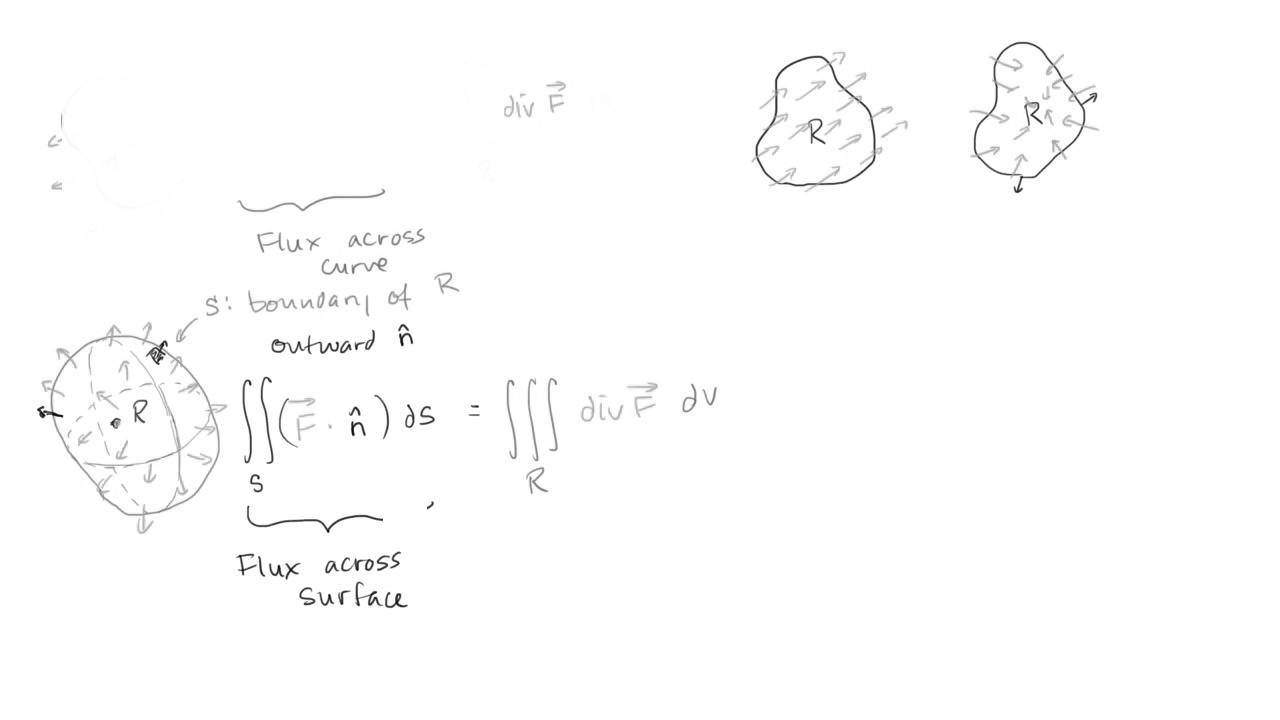 div F⃗
R
R
Flux across
curve
S: boundary of R
outward n̂
R
∬ (F⃗ · n̂) ds = ∭ div F⃗ dv
S
R
Flux across
surface